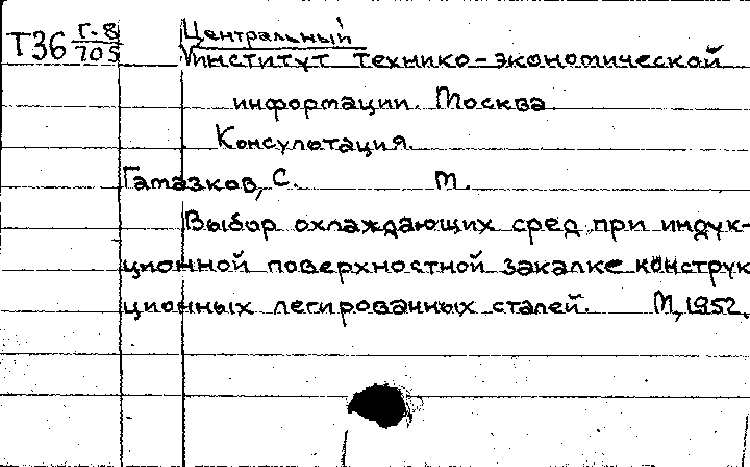 Т36 Г-8/705 Центральный
институт технико-экономической
информации. Москва.
Консультация.
Гамазков, С. М.
Выбор охлаждающих сред при индук-
ционной поверхностной закалке конструк
ционных легированных сталей. М, 1952.